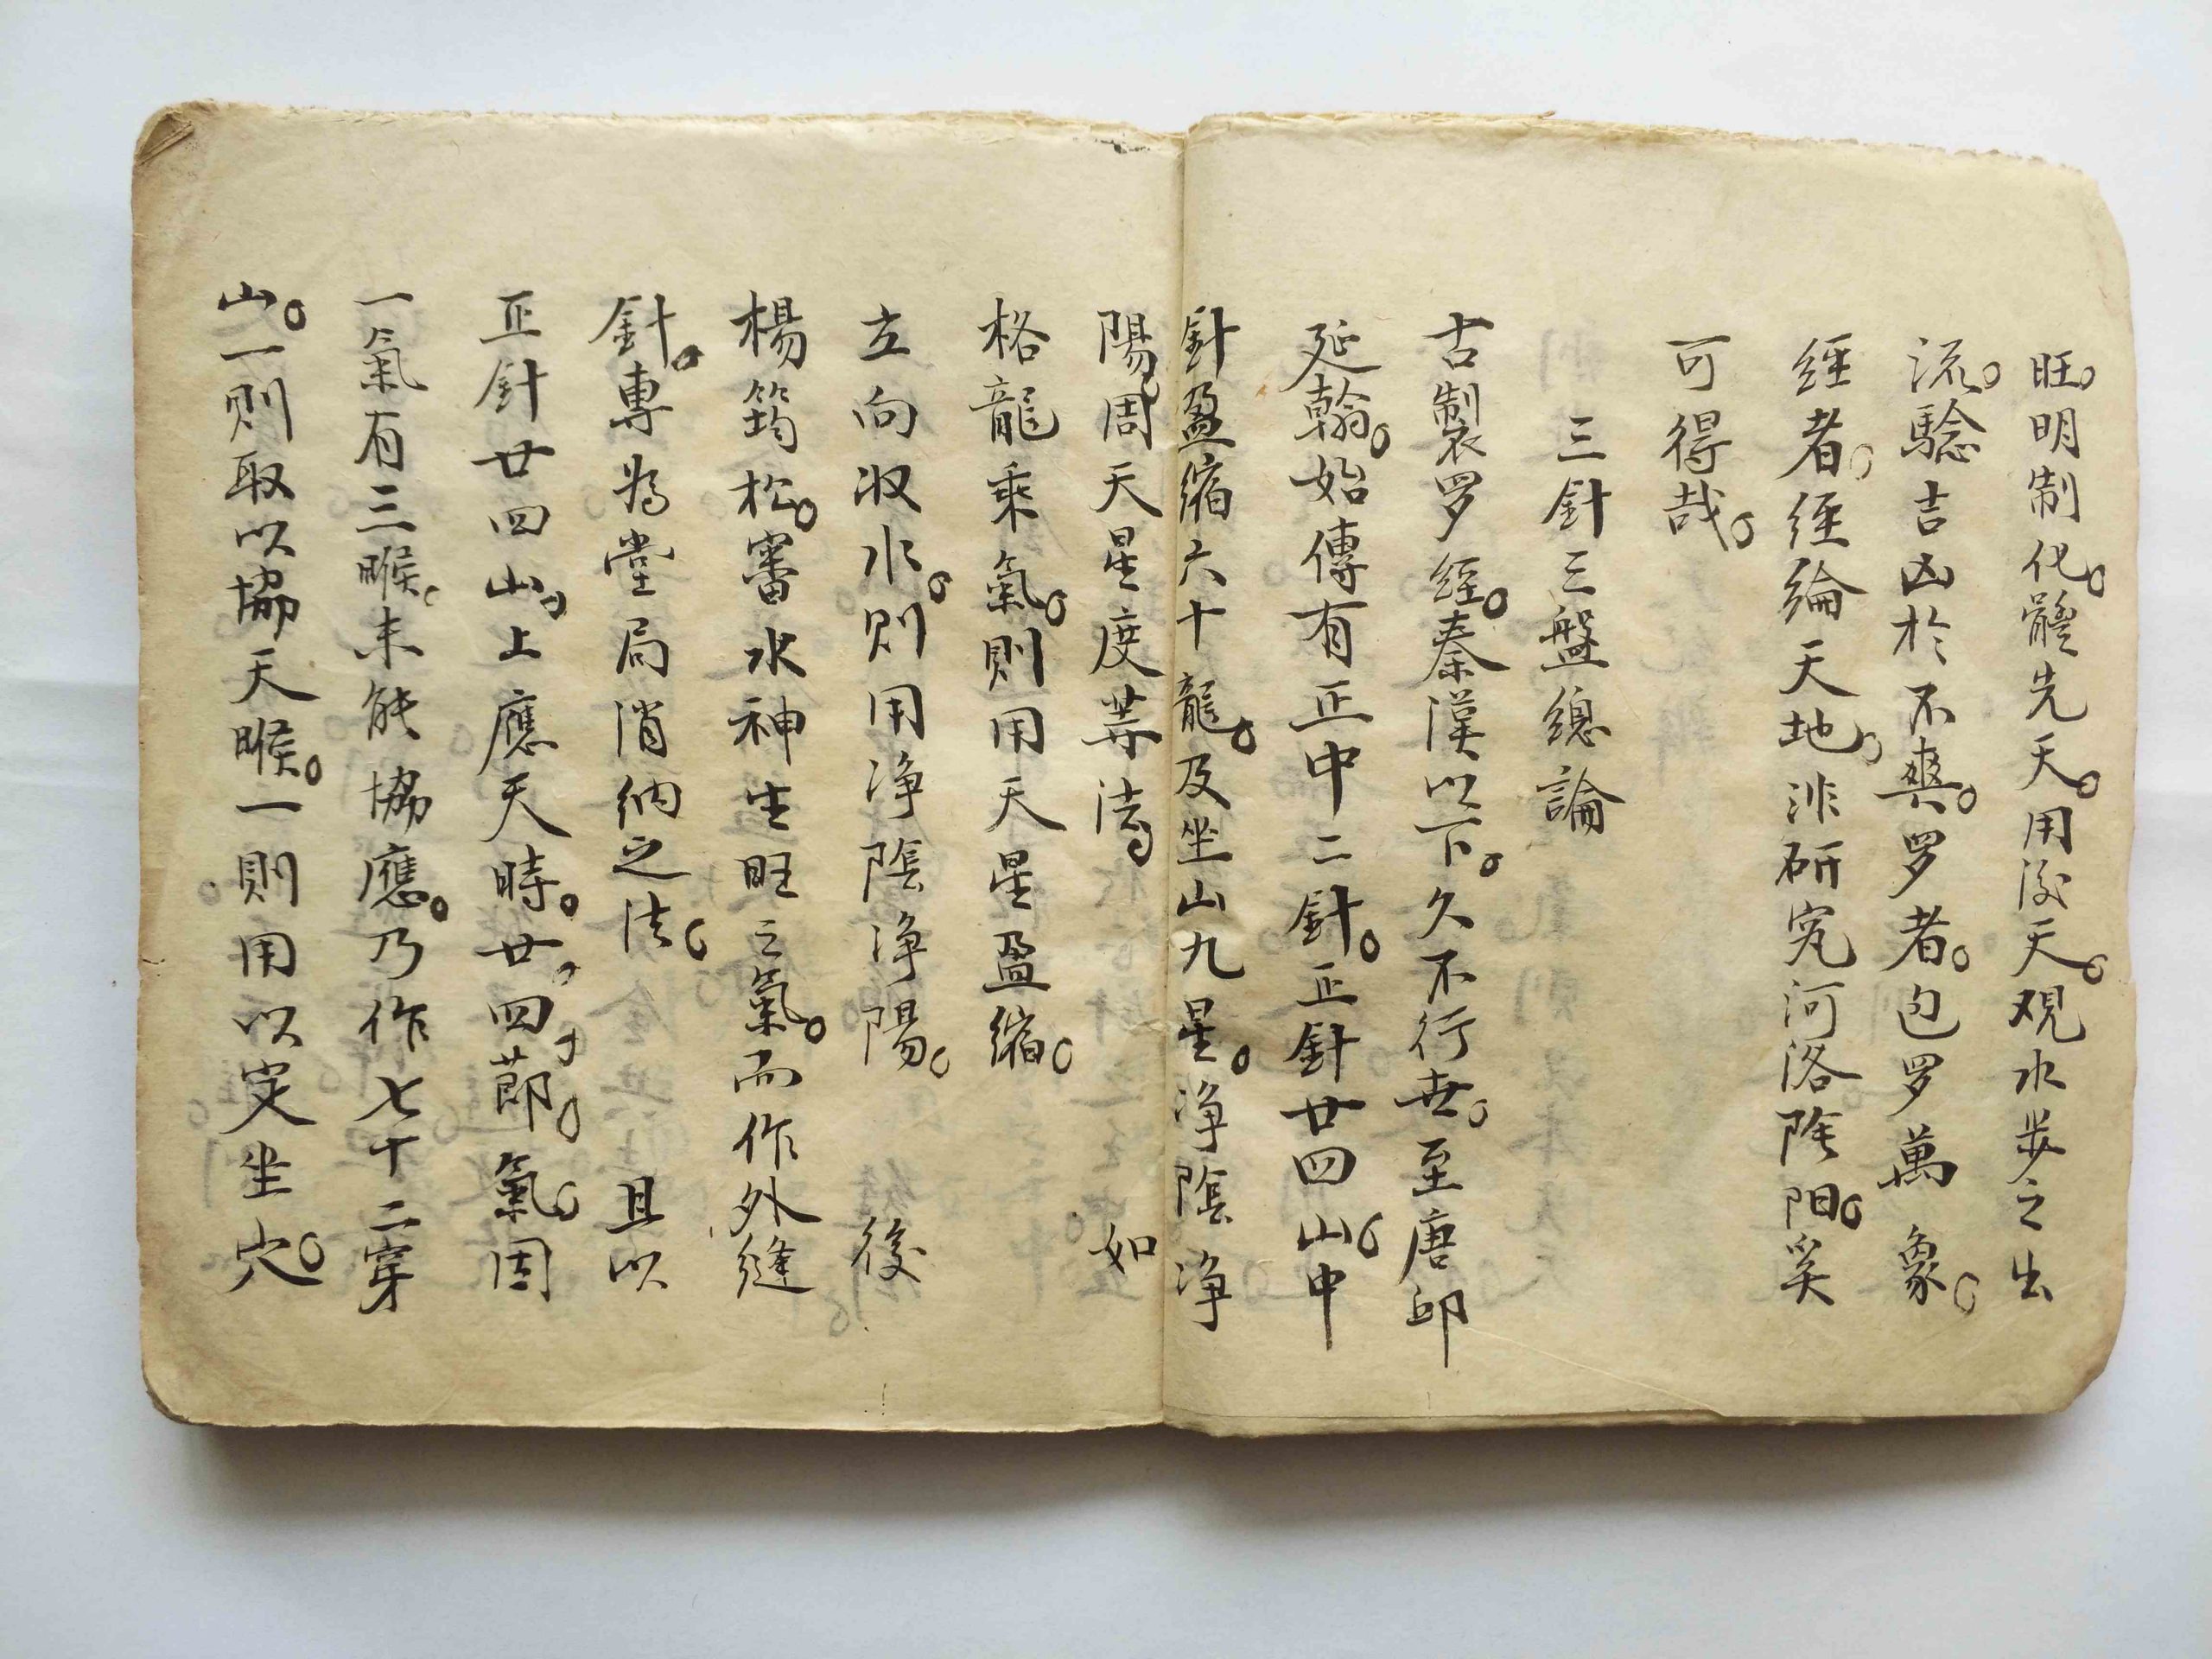 旺。明制化。體先天。用後天。观水步之出
流。騐吉凶於不爽。罗者。包罗萬象。
經者。經綸天地。非研究河洛陰阳。奚
可得哉。
三針三盤總論
古製罗經。秦漢以下。久不行世。至唐邱
延翰。始傳有正中二針。正針廿四山。中
針盈縮六十龍。及坐山九星。净陰净
陽。周天星度等法。如
格龍乘氣。則用天星盈縮。
立向收水。則用净陰净陽。後
楊筠松。審水神生旺之氣。而作外縫
針。專為堂局消納之法。且以
正針廿四山。上應天時。廿四節氣。因
一氣有三㬋。未能協應。乃作七十二穿
山。一則取以協天㬋。一則用以定坐穴。